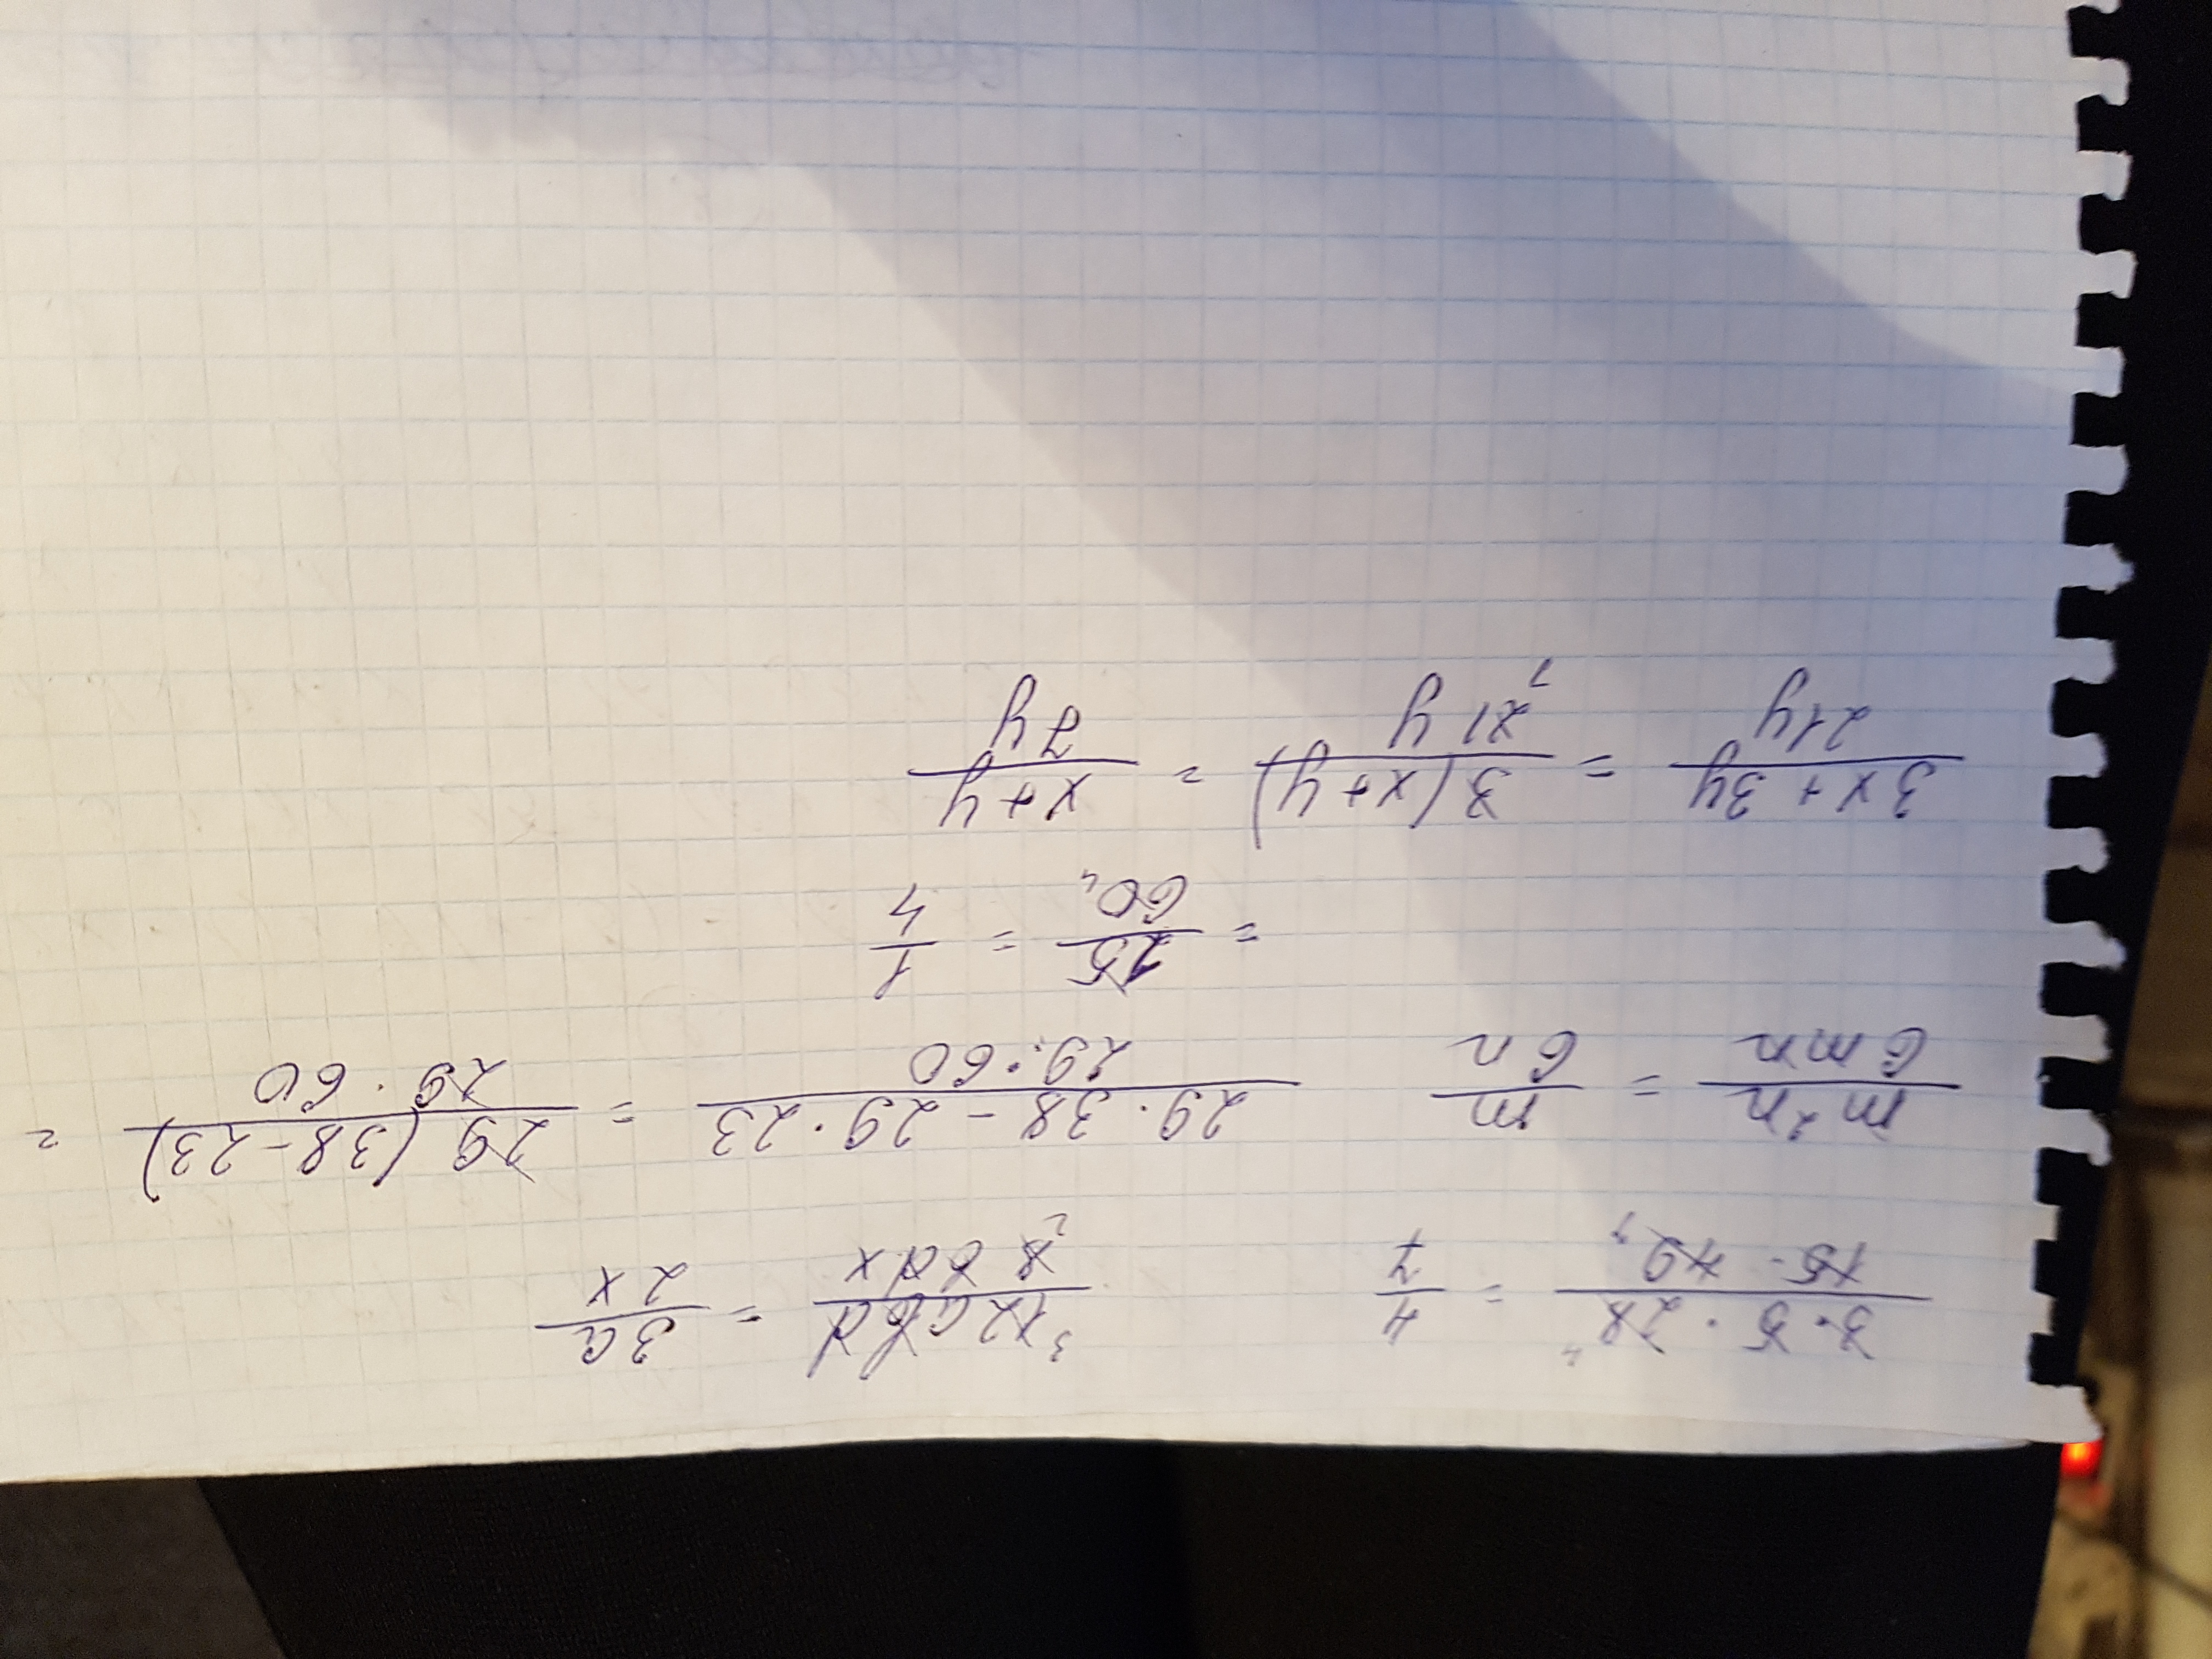 3·5·28/15·49 = 4/7   12abd/8bdx = 3a/2x
m²n/6mn = m/6n   29·38-29·23/29·60 = 29(38-23)/29·60 =
= 15/60 = 1/4
3x+3y/21y = 3(x+y)/21y = x+y/7y